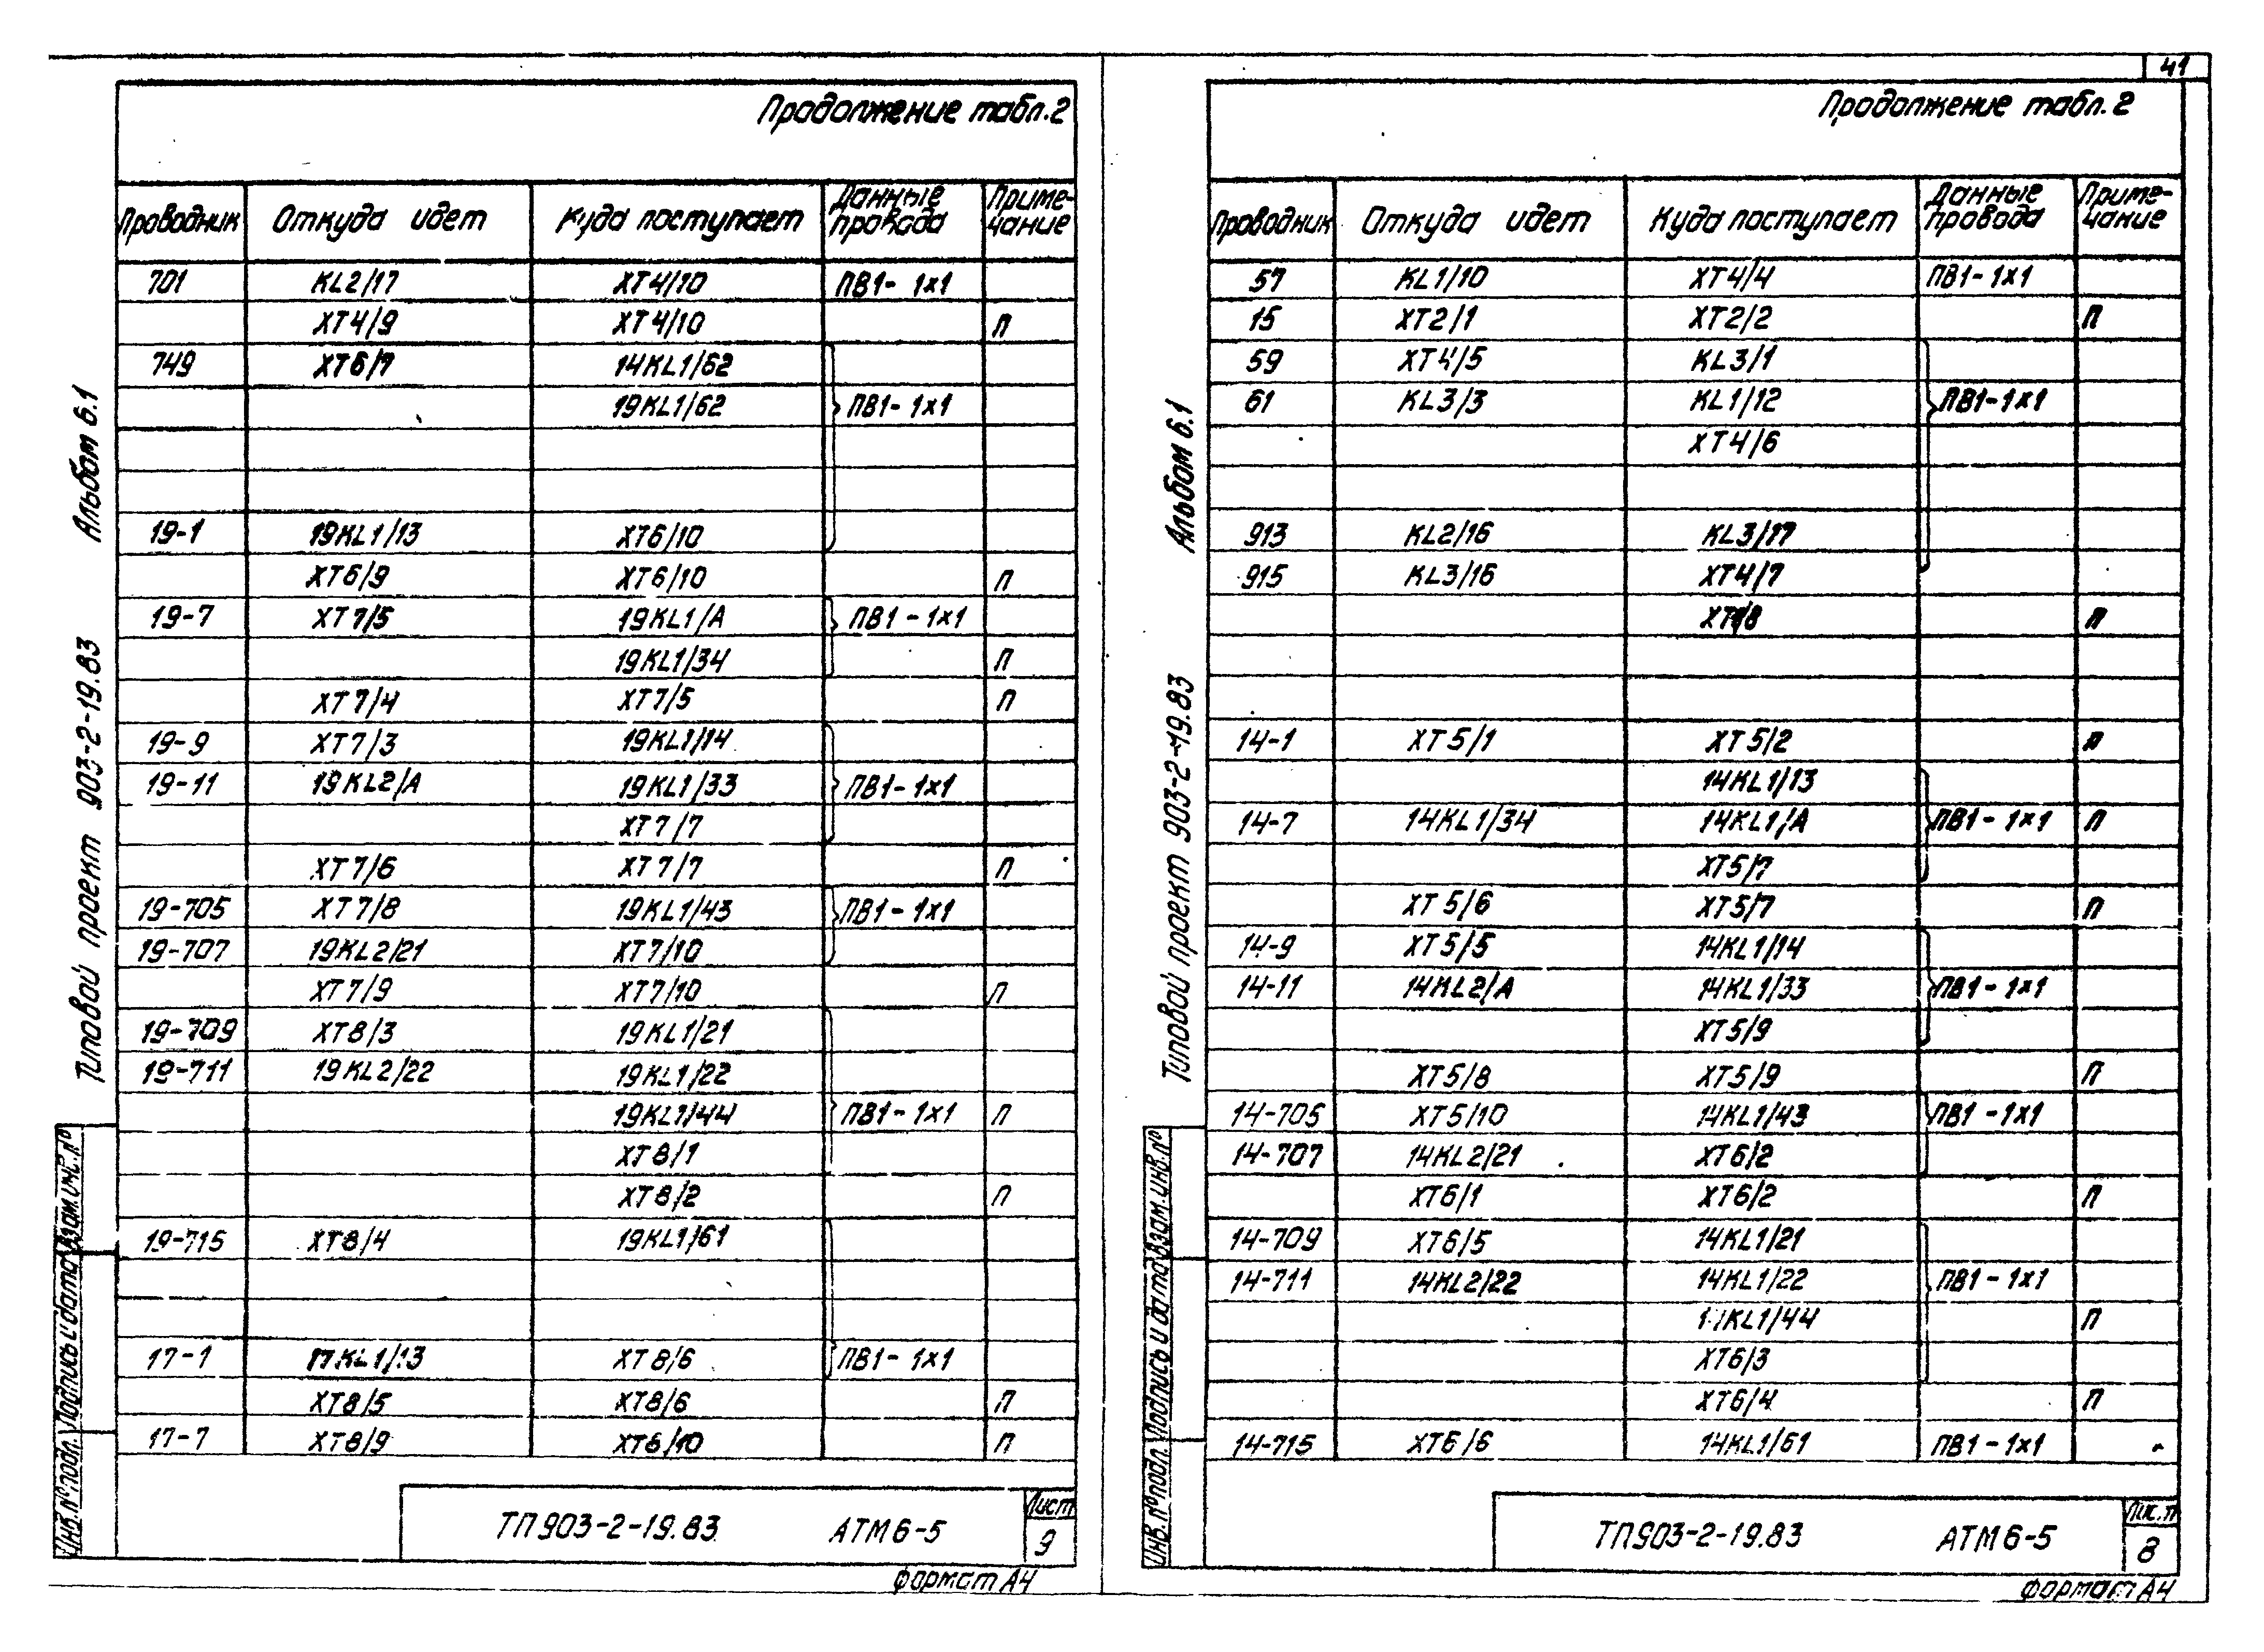 41
Продолжение табл.2
Проводник Откуда идет Куда поступает Данные провода Приме-чание
701 KL2/17 XT4/10 ПВ1-1х1
XT4/9 XT4/10 П
749 XT6/7 14KL1/62
19KL1/62 ПВ1-1х1
19-1 19KL1/13 XT6/10
XT6/9 XT6/10 П
19-7 XT7/5 19KL1/A ПВ1-1х1
19KL1/34 П
XT7/4 XT7/5 П
19-9 XT7/3 19KL1/14
19-11 19KL2/A 19KL1/33 ПВ1-1х1
XT7/7
XT7/6 XT7/7 П
19-705 XT7/8 19KL1/43 ПВ1-1х1
19-707 19KL2/21 XT7/10
XT7/9 XT7/10 П
19-709 XT8/3 19KL1/21
19-711 19KL2/22 19KL1/22
19KL1/44 ПВ1-1х1 П
XT8/1
XT8/2 П
19-715 XT8/4 19KL1/61
17-1 17KL1/13 XT8/6 ПВ1-1х1
XT8/5 XT8/6 П
17-7 XT8/9 XT6/10 П
Альбом 6.1
Типовой проект 903-2-19.83
Взам.инв.№
Подпись и дата
Инв.№подл.
ТП903-2-19.83 АТМ6-5 Лист 9
формат А4
Продолжение табл.2
Проводник Откуда идет Куда поступает Данные провода Приме-чание
57 KL1/10 XT4/4 ПВ1-1х1
15 XT2/1 XT2/2 П
59 XT4/5 KL3/1
61 KL3/3 KL1/12 ПВ1-1х1
XT4/6
913 KL2/16 KL3/17
915 KL3/16 XT4/7
П
14-1 XT5/1 XT5/2 П
14KL1/13
14-7 14KL1/34 14KL1/A ПВ1-1х1 П
XT5/7
XT5/6 XT5/7 П
14-9 XT5/5 14KL1/14
14-11 14KL2/A 14KL1/33 ПВ1-1х1
XT5/9
XT5/8 XT5/9 П
14-705 XT5/10 14KL1/43 ПВ1-1х1
14-707 14KL2/21 XT6/2
XT6/1 XT6/2 П
14-709 XT6/5 14KL1/21
14-711 14KL2/22 14KL1/22 ПВ1-1х1
14KL1/44 П
XT6/3
XT6/4 П
14-715 XT6/6 14KL1/61 ПВ1-1х1
Альбом 6.1
Типовой проект 903-2-19.83
Взам.инв.№
Подпись и дата
Инв.№подл.
ТП903-2-19.83 АТМ6-5 Лист 8
формат А4